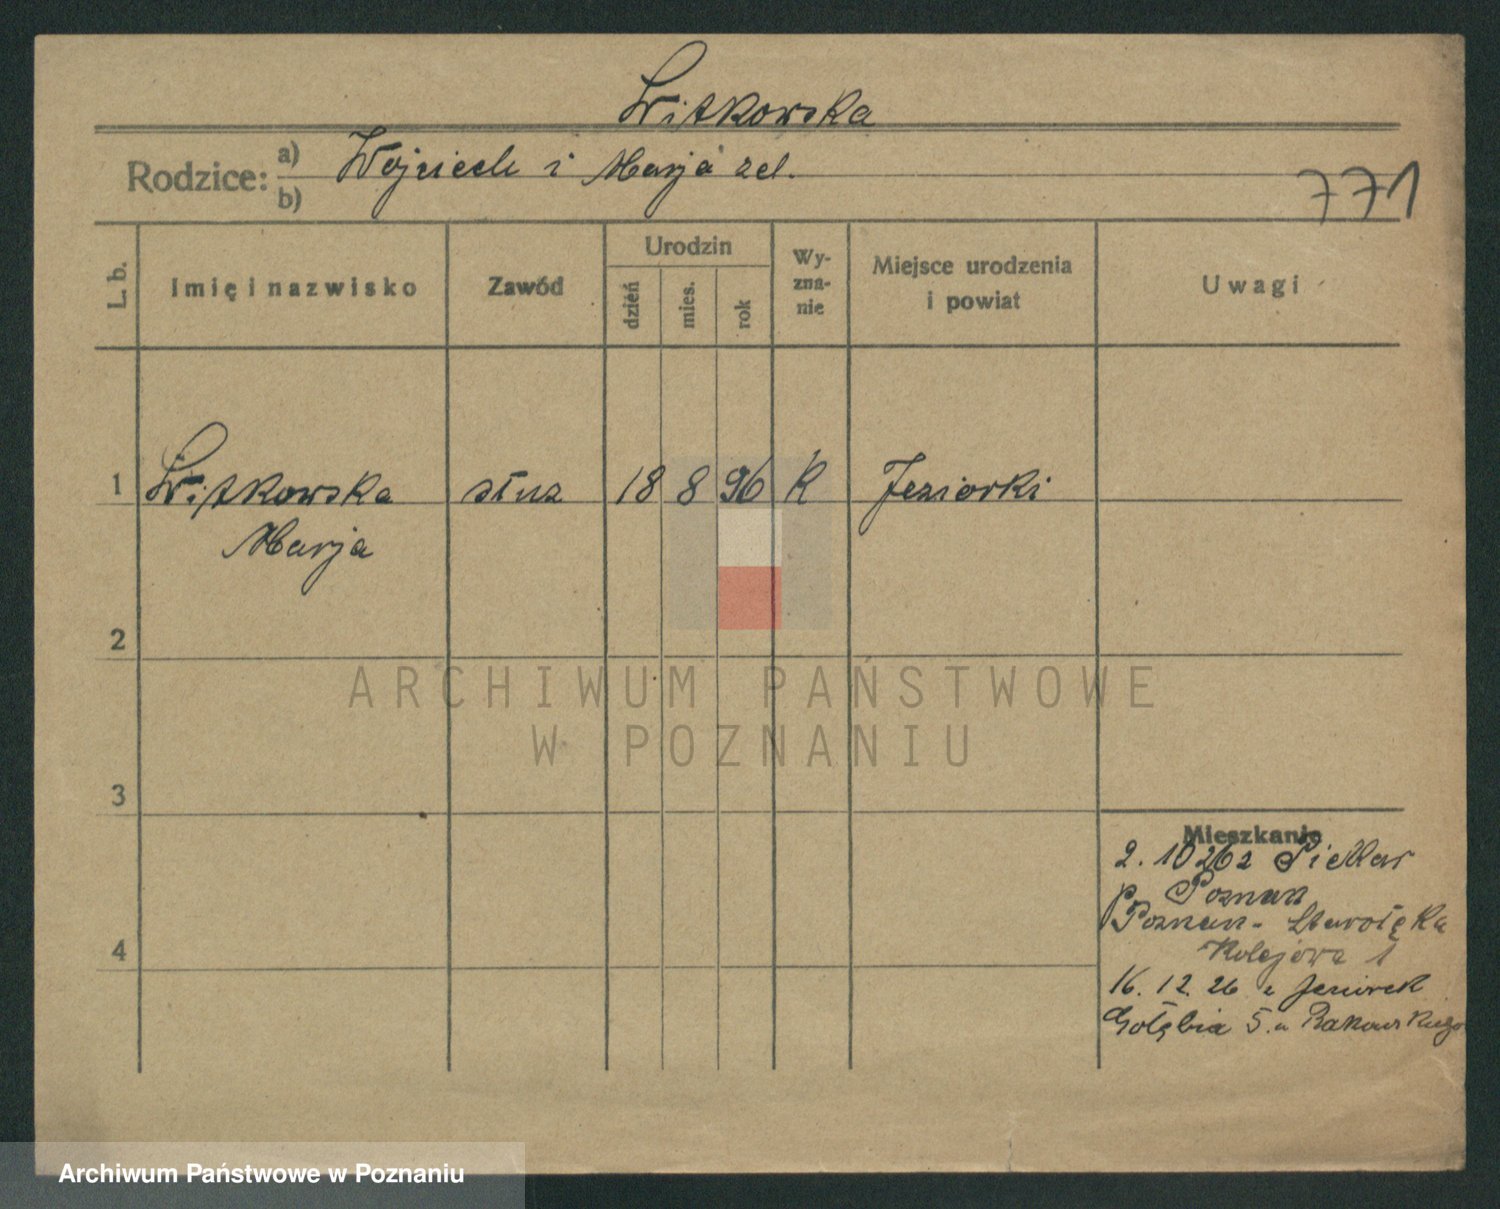 Witkowska
Rodzice: a) Wojciech i Marja zel.
b)
771
L. b. Imię i nazwisko Zawód Urodzin dzień mies. rok Wy-zna-nie Miejsce urodzenia i powiat Uwagi
1 Witkowska służ 18 8 96 K Jeziorki
Marja
2
ARCHIWUM PAŃSTWOWE
W POZNANIU
3
Mieszkanie
2. 10 26 z Piekar
p. Poznan
4 Poznan - Starołęka
Kolejowa 1
16. 12. 26 z Jeziorek
Gołębia 5. u Rakowskiego
Archiwum Państwowe w Poznaniu